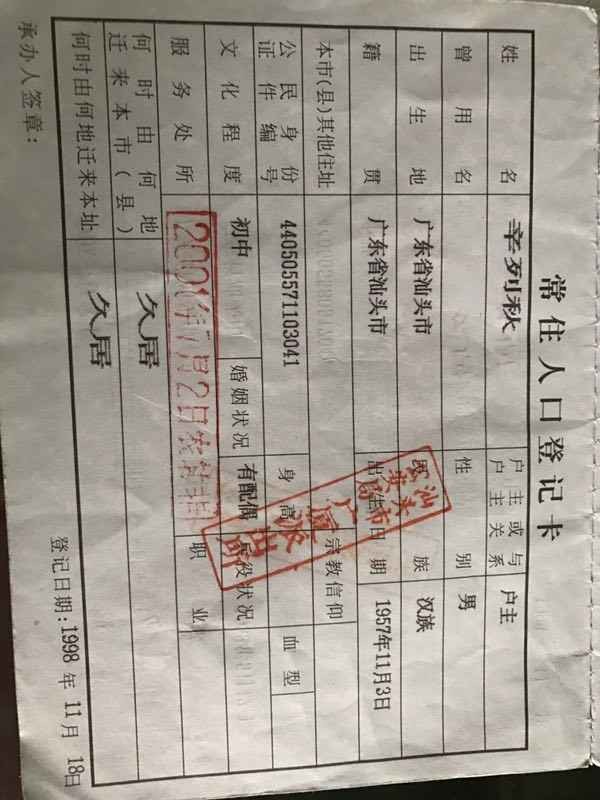 常住人口登记卡
姓名 辛列秋 户主或与户主关系 户主
曾用名 性别 男
出生地 广东省汕头市 民族 汉族
籍贯 广东省汕头市 出生日期 1957年11月3日
本市(县)其他住址 宗教信仰
公民身份证件编号 440505571103041 身高 血型
文化程度 初中 婚姻状况 有配偶 兵役状况
服务处所 2001年7月2日 职业
何时由何地迁来本市(县) 久居
何时由何地迁来本址 久居
承办人签章: 登记日期:1998年11月18日
汕头市
派出所